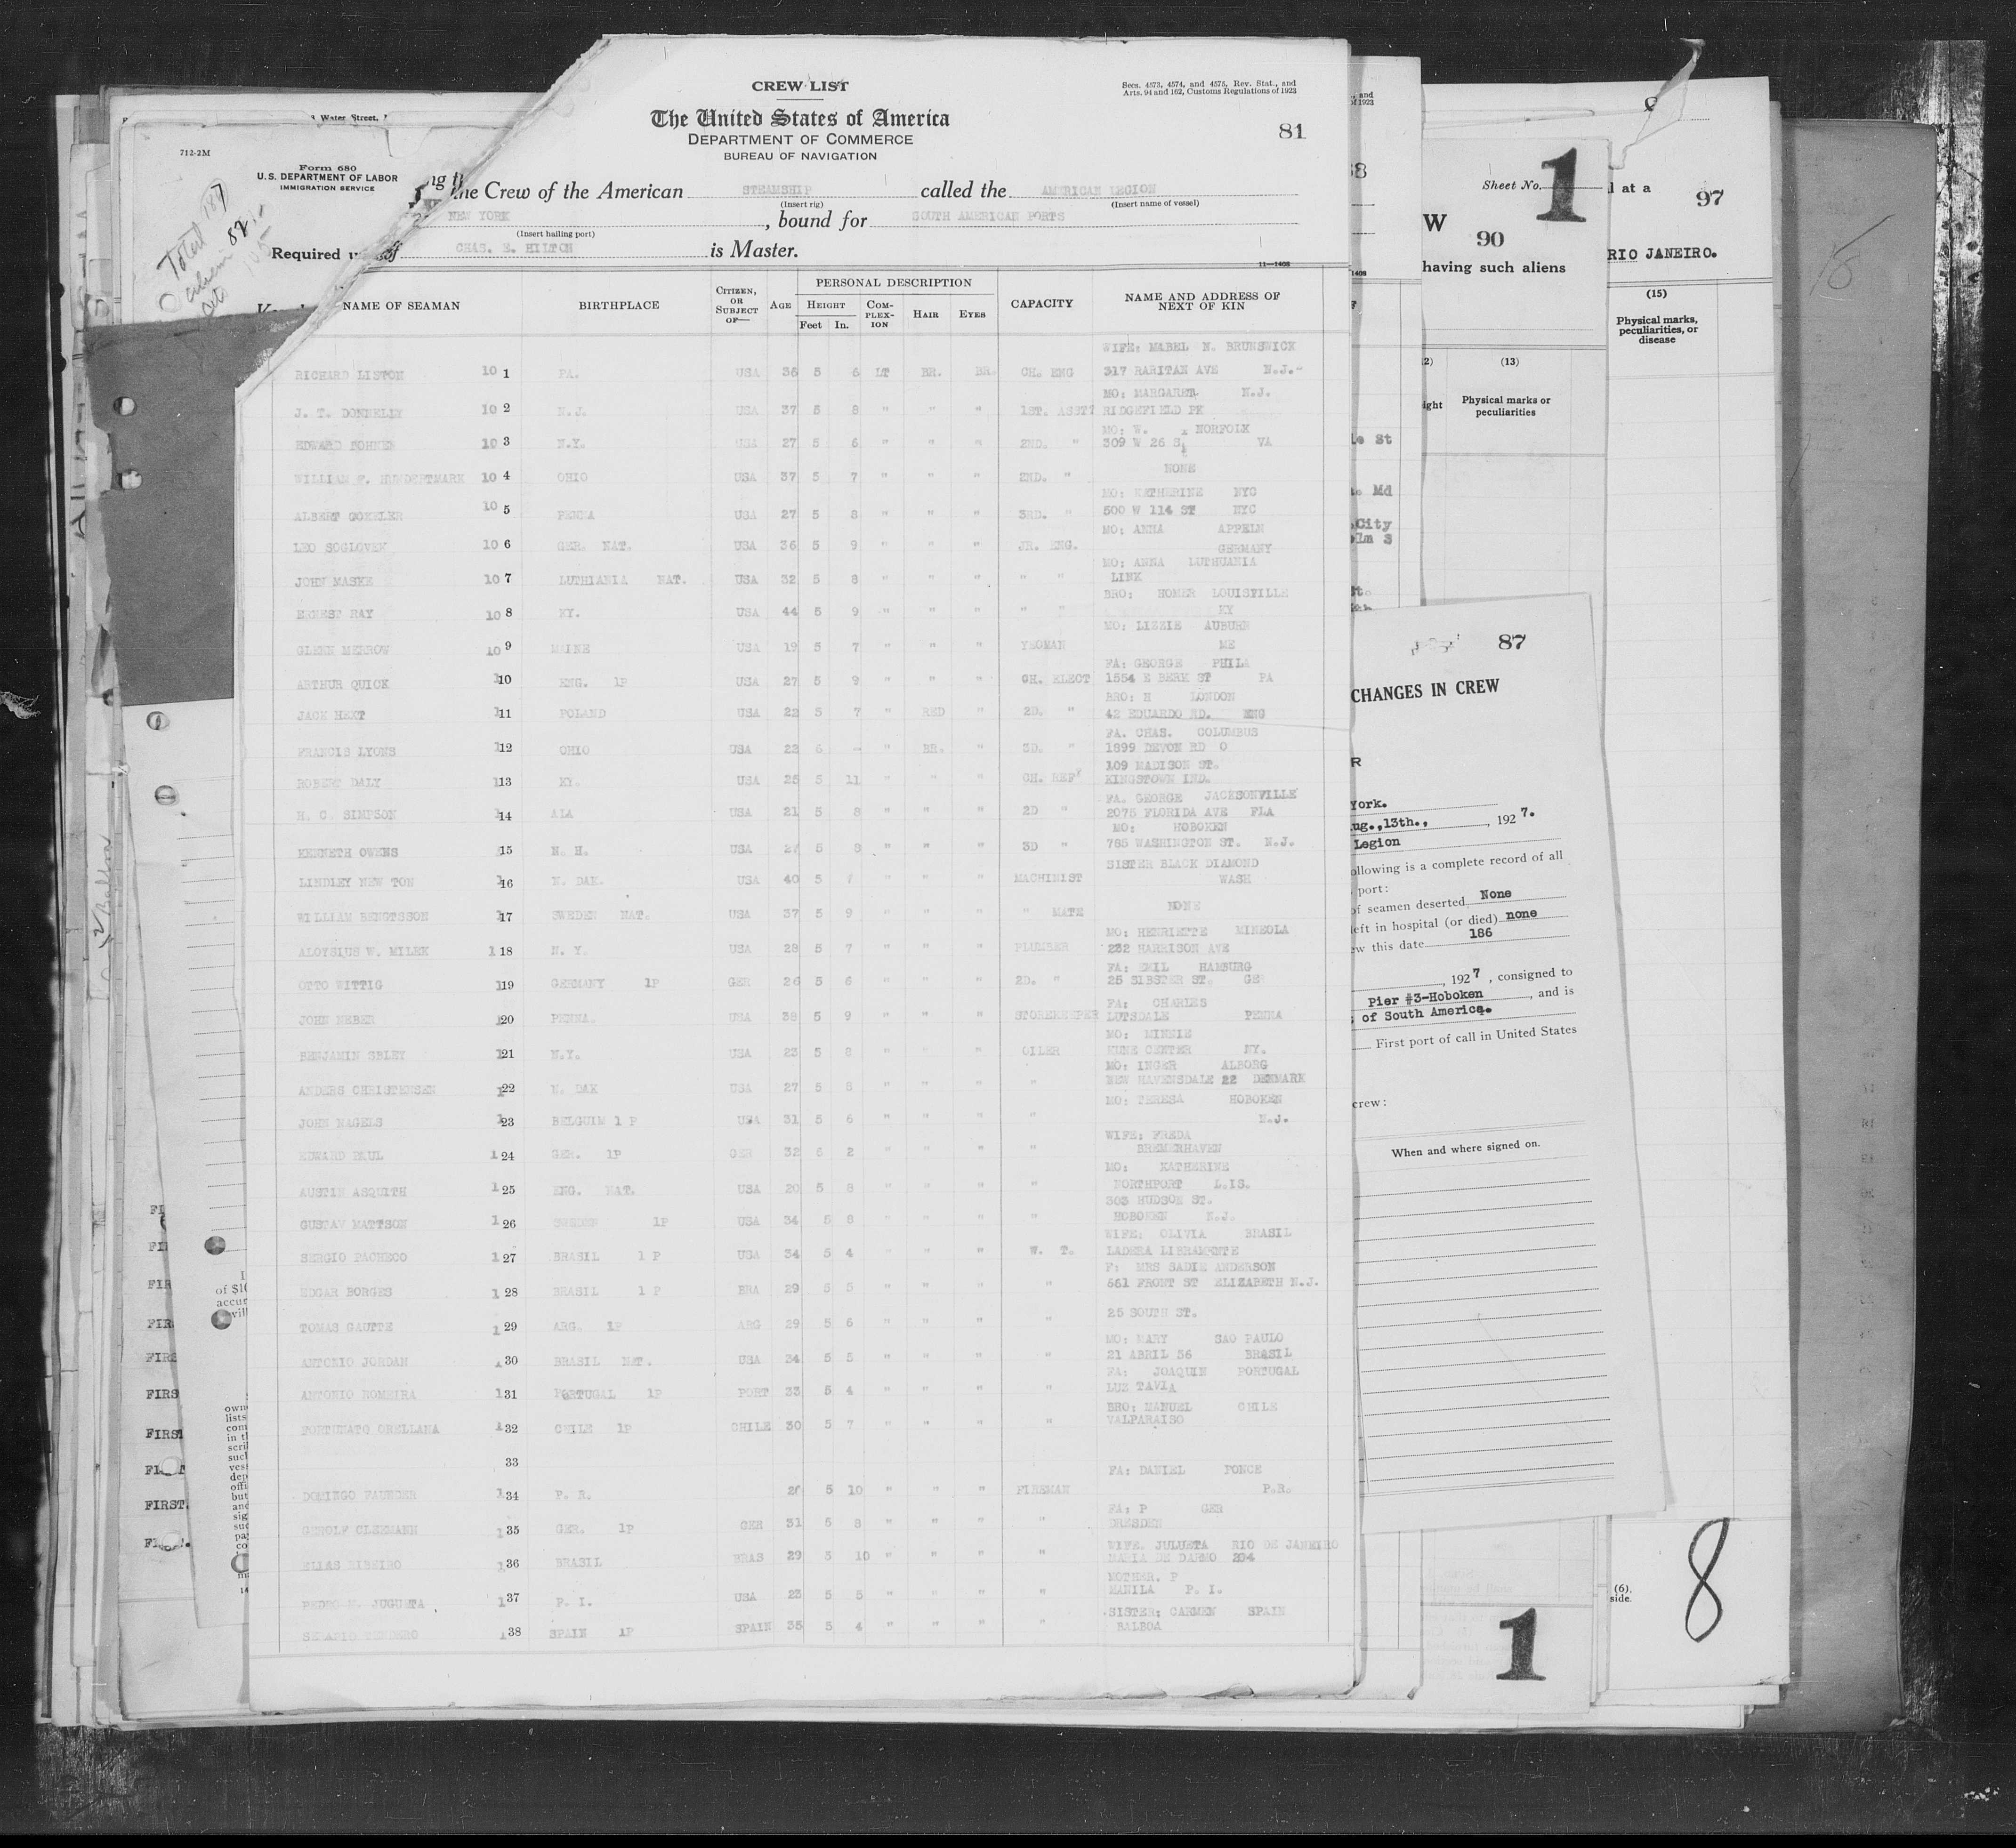 CREW LIST
Secs. 4573, 4574, and 4575, Rev. Stat., and
Arts. 94 and 162, Customs Regulations of 1923
The United States of America
DEPARTMENT OF COMMERCE
BUREAU OF NAVIGATION
81
the Crew of the American STEAMSHIP called the AMERICAN LEGION
(Insert rig) (Insert name of vessel)
NEW YORK, bound for SOUTH AMERICAN PORTS
(Insert hailing port)
of CHAS. E. HILTON is Master.
11—1408
NAME OF SEAMAN BIRTHPLACE CITIZEN, OR SUBJECT OF— AGE PERSONAL DESCRIPTION CAPACITY NAME AND ADDRESS OF NEXT OF KIN
HEIGHT COMPLEXION HAIR EYES
Feet In.
WIFE: MABEL N. BRUNSWICK
RICHARD LISTON 10 1 PA. USA 36 5 6 LT BR. BR. CH. ENG 317 RARITAN AVE N.J.
MO: MARGARET N.J.
J. T. DONNELLY 10 2 N.J. USA 37 5 8 " " " 1ST. ASST RIDGEFIELD PK
MO: W. NORFOLK
EDWARD 10 3 N.Y. USA 27 5 6 " " " 2ND. " 309 W 26 S VA
NONE
WILLIAM F. HUNDERTMARK 10 4 OHIO USA 37 5 7 " " " 2ND. "
MO: KATHERINE NYC
ALBERT 10 5 PENNA USA 27 5 8 " " " 3RD. " 500 W 114 ST NYC
MO: ANNA APPELN
LEO SOGLOVEK 10 6 GER. NAT. USA 36 5 9 " " " JR. ENG. GERMANY
MO: ANNA LUTHUANIA
JOHN MASKE 10 7 LUTHIANIA NAT. USA 32 5 8 " " " " " LINK
BRO: HOMER LOUISVILLE
ERNEST RAY 10 8 KY. USA 44 5 9 " " " " " KY
MO: LIZZIE AUBURN
GLENN MERROW 10 9 MAINE USA 19 5 7 " " " YEOMAN ME
FA: GEORGE PHILA
ARTHUR QUICK 110 ENG. 1P USA 27 5 9 " " " CH. ELECT 1554 E BERK ST PA
BRO: H LONDON
JACK HEXT 111 POLAND USA 22 5 7 " RED " 2D. " 42 EDUARDO RD. ENG
FA. CHAS. COLUMBUS
FRANCIS LYONS 112 OHIO USA 22 6 - " BR. " 3D. " 1899 DEVON RD O
109 MADISON ST.
ROBERT DALY 113 KY. USA 25 5 11 " " " CH. REF KINGSTOWN IND.
FA. GEORGE JACKSONVILLE
H. C. SIMPSON 114 ALA USA 21 5 8 " " " 2D " 2075 FLORIDA AVE FLA
MO: HOBOKEN
KENNETH OWENS 115 N. H. USA 27 5 8 " " " 3D " 785 WASHINGTON ST. N.J.
SISTER BLACK DIAMOND
LINDLEY NEW TON 116 N. DAK. USA 40 5 7 " " " MACHINIST WASH
WILLIAM BENGTSSON 117 SWEDEN NAT. USA 37 5 9 " " " " MATE NONE
MO: HENRIETTE MINEOLA
ALOYSIUS W. MILEK 118 N. Y. USA 28 5 7 " " " PLUMBER 232 HARRISON AVE
FA: EMIL HAMBURG
OTTO WITTIG 119 GERMANY 1P GER 26 5 6 " " " 2D. " 25 SIBSTER ST. GER
FA: CHARLES
JOHN NEBER 120 PENNA. USA 38 5 9 " " " STOREKEEPER LUTSDALE PENNA
MO: MINNIE
BENJAMIN SBLEY 121 N.Y. USA 23 5 8 " " " OILER KUNE CENTER NY.
MO: INGER ALBORG
ANDERS CHRISTENSEN 122 N. DAK USA 27 5 8 " " " " NEW HAVENSDALE 22 DENMARK
MO: TERESA HOBOKEN
JOHN NAGELS 123 BELGUIM 1 P USA 31 5 6 " " " " N.J.
WIFE: FREDA
EDWARD PAUL 124 GER. 1P GER 32 6 2 " " " " BREMERHAVEN
MO: KATHERINE
AUSTIN ASQUITH 125 ENG. NAT. USA 20 5 8 " " " " NORTHPORT L.IS.
303 HUDSON ST.
GUSTAV MATTSON 126 SWEDEN 1P USA 34 5 8 " " " " HOBOKEN N.J.
WIFE: OLIVIA BRASIL
SERGIO PACHECO 127 BRASIL 1 P USA 34 5 4 " " " W. T. LADERA LIBRAMONTE
F: MRS SADIE ANDERSON
EDGAR BORGES 128 BRASIL 1 P BRA 29 5 5 " " " " 561 FRONT ST ELIZABETH N.J.
TOMAS GAUTTE 129 ARG. 1P ARG 29 5 6 " " " " 25 SOUTH ST.
MO: MARY SAO PAULO
ANTONIO JORDAN 130 BRASIL NAT. USA 34 5 5 " " " " 21 ABRIL 56 BRASIL
FA: JOAQUIN PORTUGAL
ANTONIO ROMEIRA 131 PORTUGAL 1P PORT 33 5 4 " " " " LUZ TAVIA
BRO: MANUEL CHILE
FORTUNATO ORELLANA 132 CHILE 1P CHILE 30 5 7 " " " " VALPARAISO
33
FA: DANIEL PONCE
DOMINGO FAUNDER 134 P. R. 5 10 " " " FIREMAN P.R.
FA: P GER
CLEEMANN 135 GER. 1P GER 31 5 8 " " " " DRESDEN
WIFE. JULUETA RIO DE JANEIRO
ELIAS RIBEIRO 136 BRASIL BRAS 29 5 10 " " " " MARIA DE DARMO 204
MOTHER. P
PEDRO JUGUETA 137 P. I. USA 23 5 5 " " " " MANILA P. I.
SISTER: CARMEN SPAIN
138 SPAIN 1P SPAIN 35 5 4 " " " " BALBOA
712-2M
Form 680
U.S. DEPARTMENT OF LABOR
IMMIGRATION SERVICE
Total 187
Required
Water Street,
Sheet No. 1
W
90
having such aliens
(13)
Physical marks or
peculiarities
l at a
97
RIO JANEIRO.
(15)
Physical marks,
peculiarities, or
disease
87
CHANGES IN CREW
York.
Aug.,13th., 1927.
Legion
following is a complete record of all
port:
of seamen deserted None
left in hospital (or died) none
ew this date 186
, 1927, consigned to
Pier #3-Hoboken, and is
of South America.
First port of call in United States
crew:
When and where signed on.
(6).
side.
8
1
FIRST
FIRST.